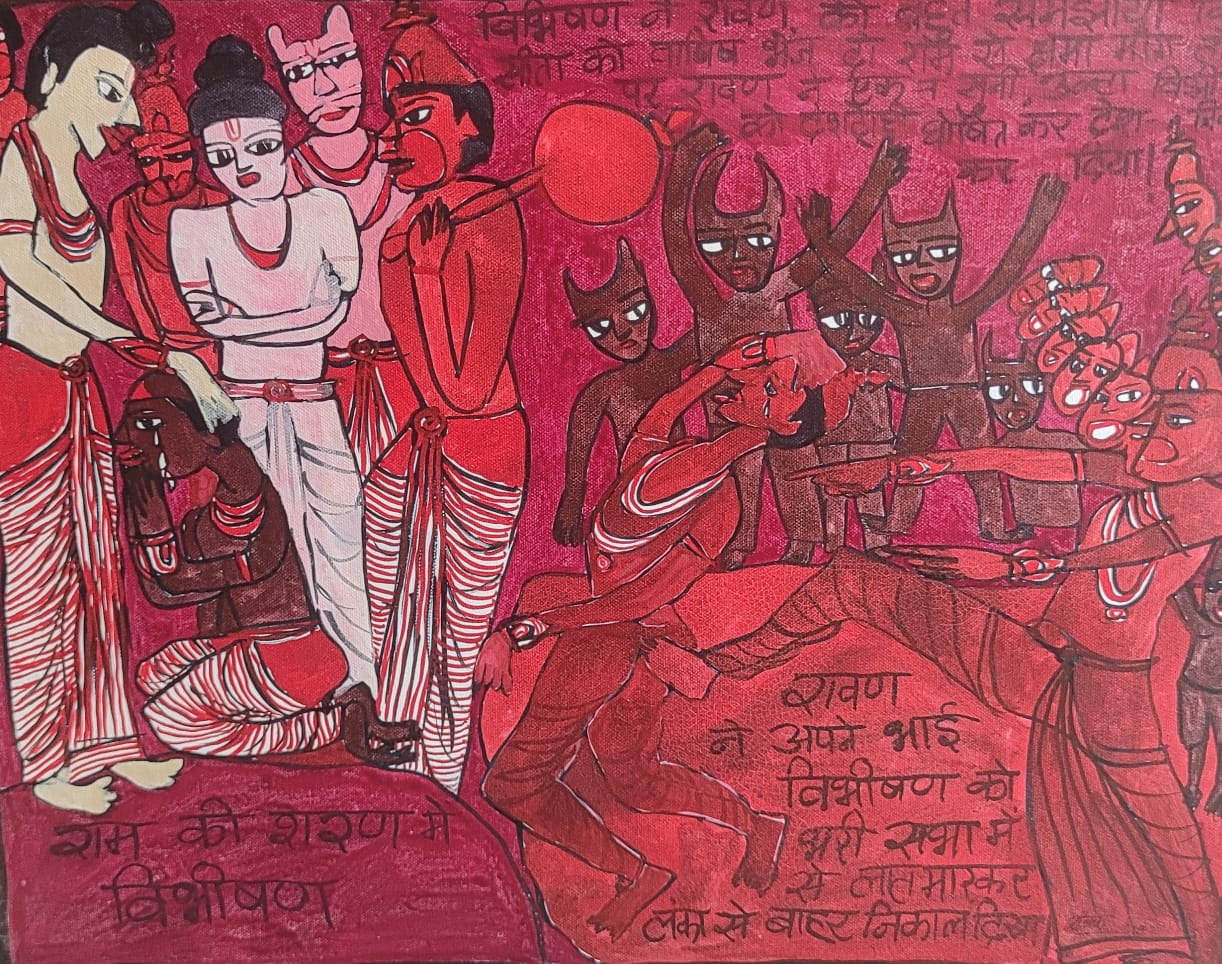 विभिषण ने रावण को बहुत समझाया
सीता को वापिस भेज दो राम से क्षमा माँग
पर रावण ने एक न सुनी उल्टा विभी
को देशद्रोही घोषित कर देश
कर दिया।
रावण
ने अपने भाई
विभीषण को
भरी सभा में
से लात मारकर
लंका से बाहर निकाल दिया
राम की शरण में
विभीषण